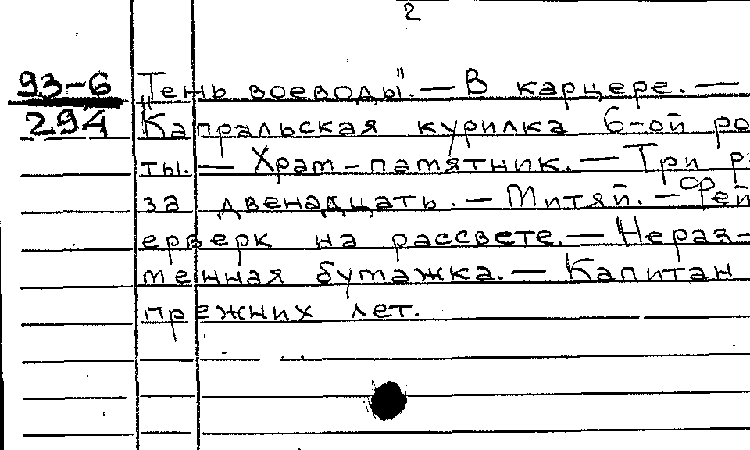 2
93-6 Тень воеводы". — В карцере. —
294 Капральская курилка 6-ой ро
ты. — Храм-памятник. — Три р
за двенадцать. — Митяй. — Фей
ерверк на рассвете. — Нераз-
менная бумажка. — Капитан
прежних лет.